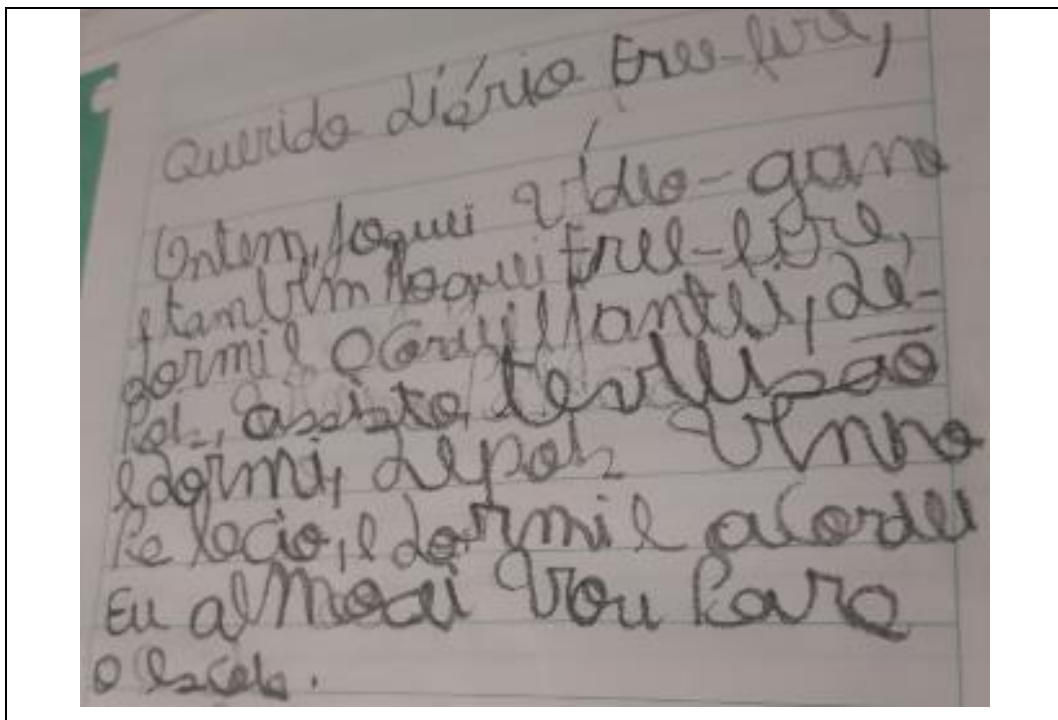 Querido diário Free-fire,
Ontem, joguei vídeo-game
e também joguei Free-fire,
dormi e acordei jantei, de-
pois, assisto, televisão
e dormi, depois venho
e dormi e acordei
Eu almoci vou para
a escola.